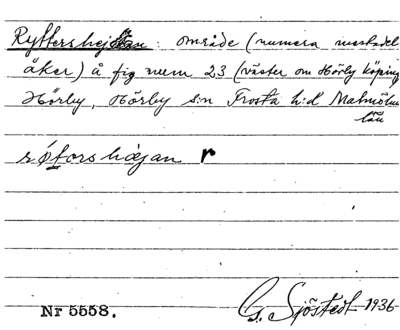 Ryttershejan: område (numera mestadel
åker) å fig num 23 (väster om Hörby köping
Hörby, Hörby s:n Frosta h:d Malmöhus
län
røforshæjan r
Nr 5558.
G. Sjöstedt 1936